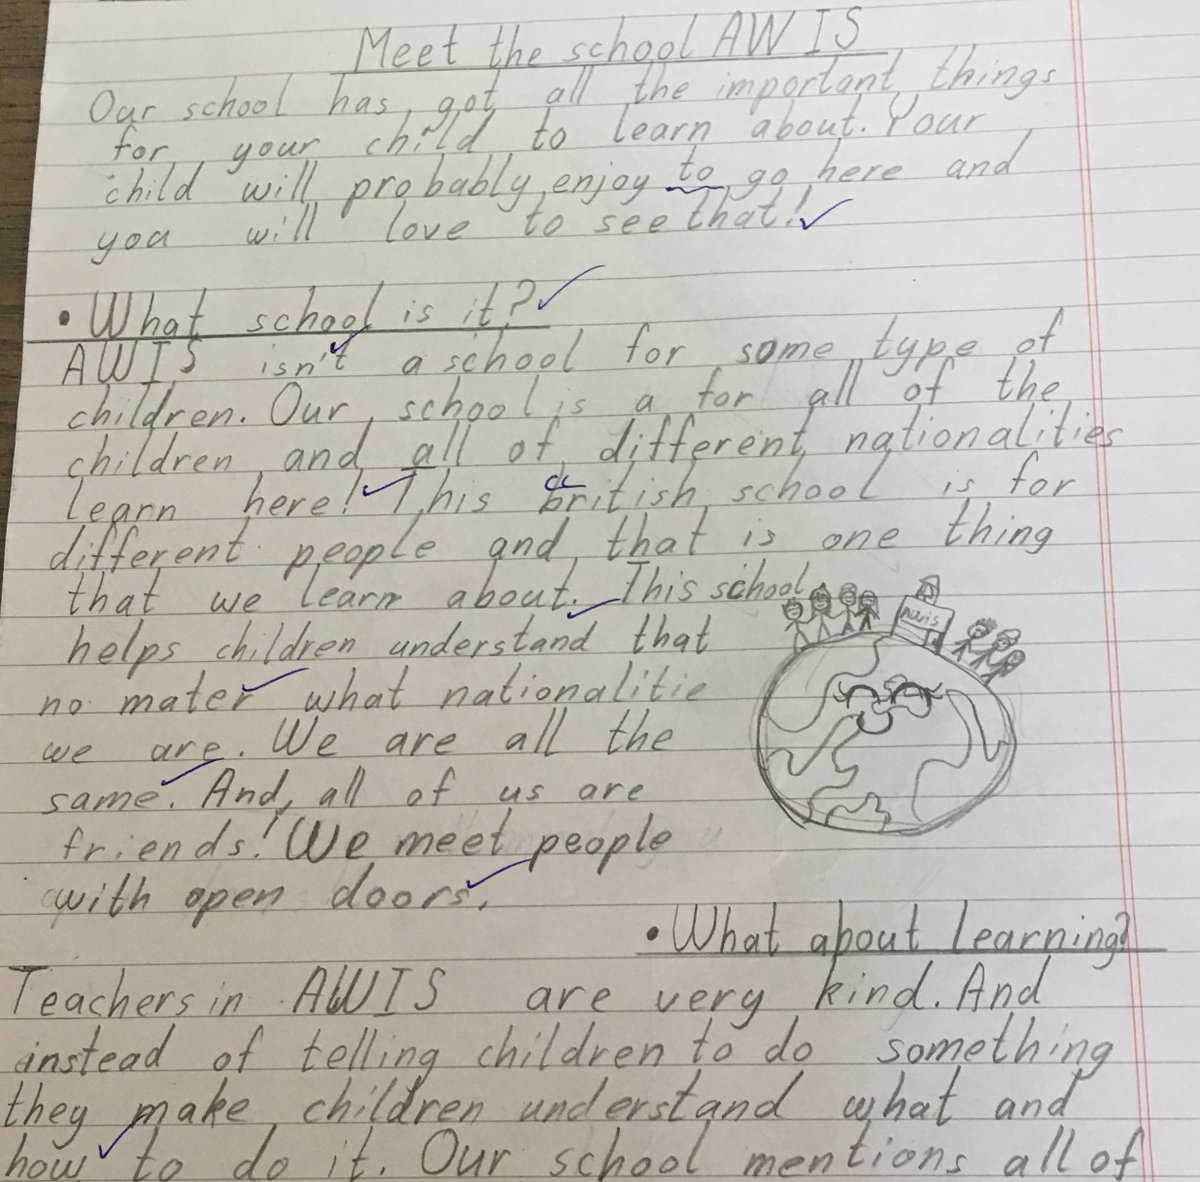 Meet the school AWIS
Our school has got all the important things
for your child to learn about. Your
child will probably enjoy to go here and
you will love to see that!
• What school is it?
AWIS isn't a school for some type of
children. Our school is a for all of the
children and all of different nationalities
learn here! This british school is for
different people and that is one thing
that we learn about. This school
helps children understand that
no mater what nationalitie
we are. We are all the
same. And, all of us are
friends! We meet people
with open doors.
AWIS
• What about learning?
Teachers in AWIS are very kind. And
instead of telling children to do something
they make children understand what and
how to do it. Our school mentions all of